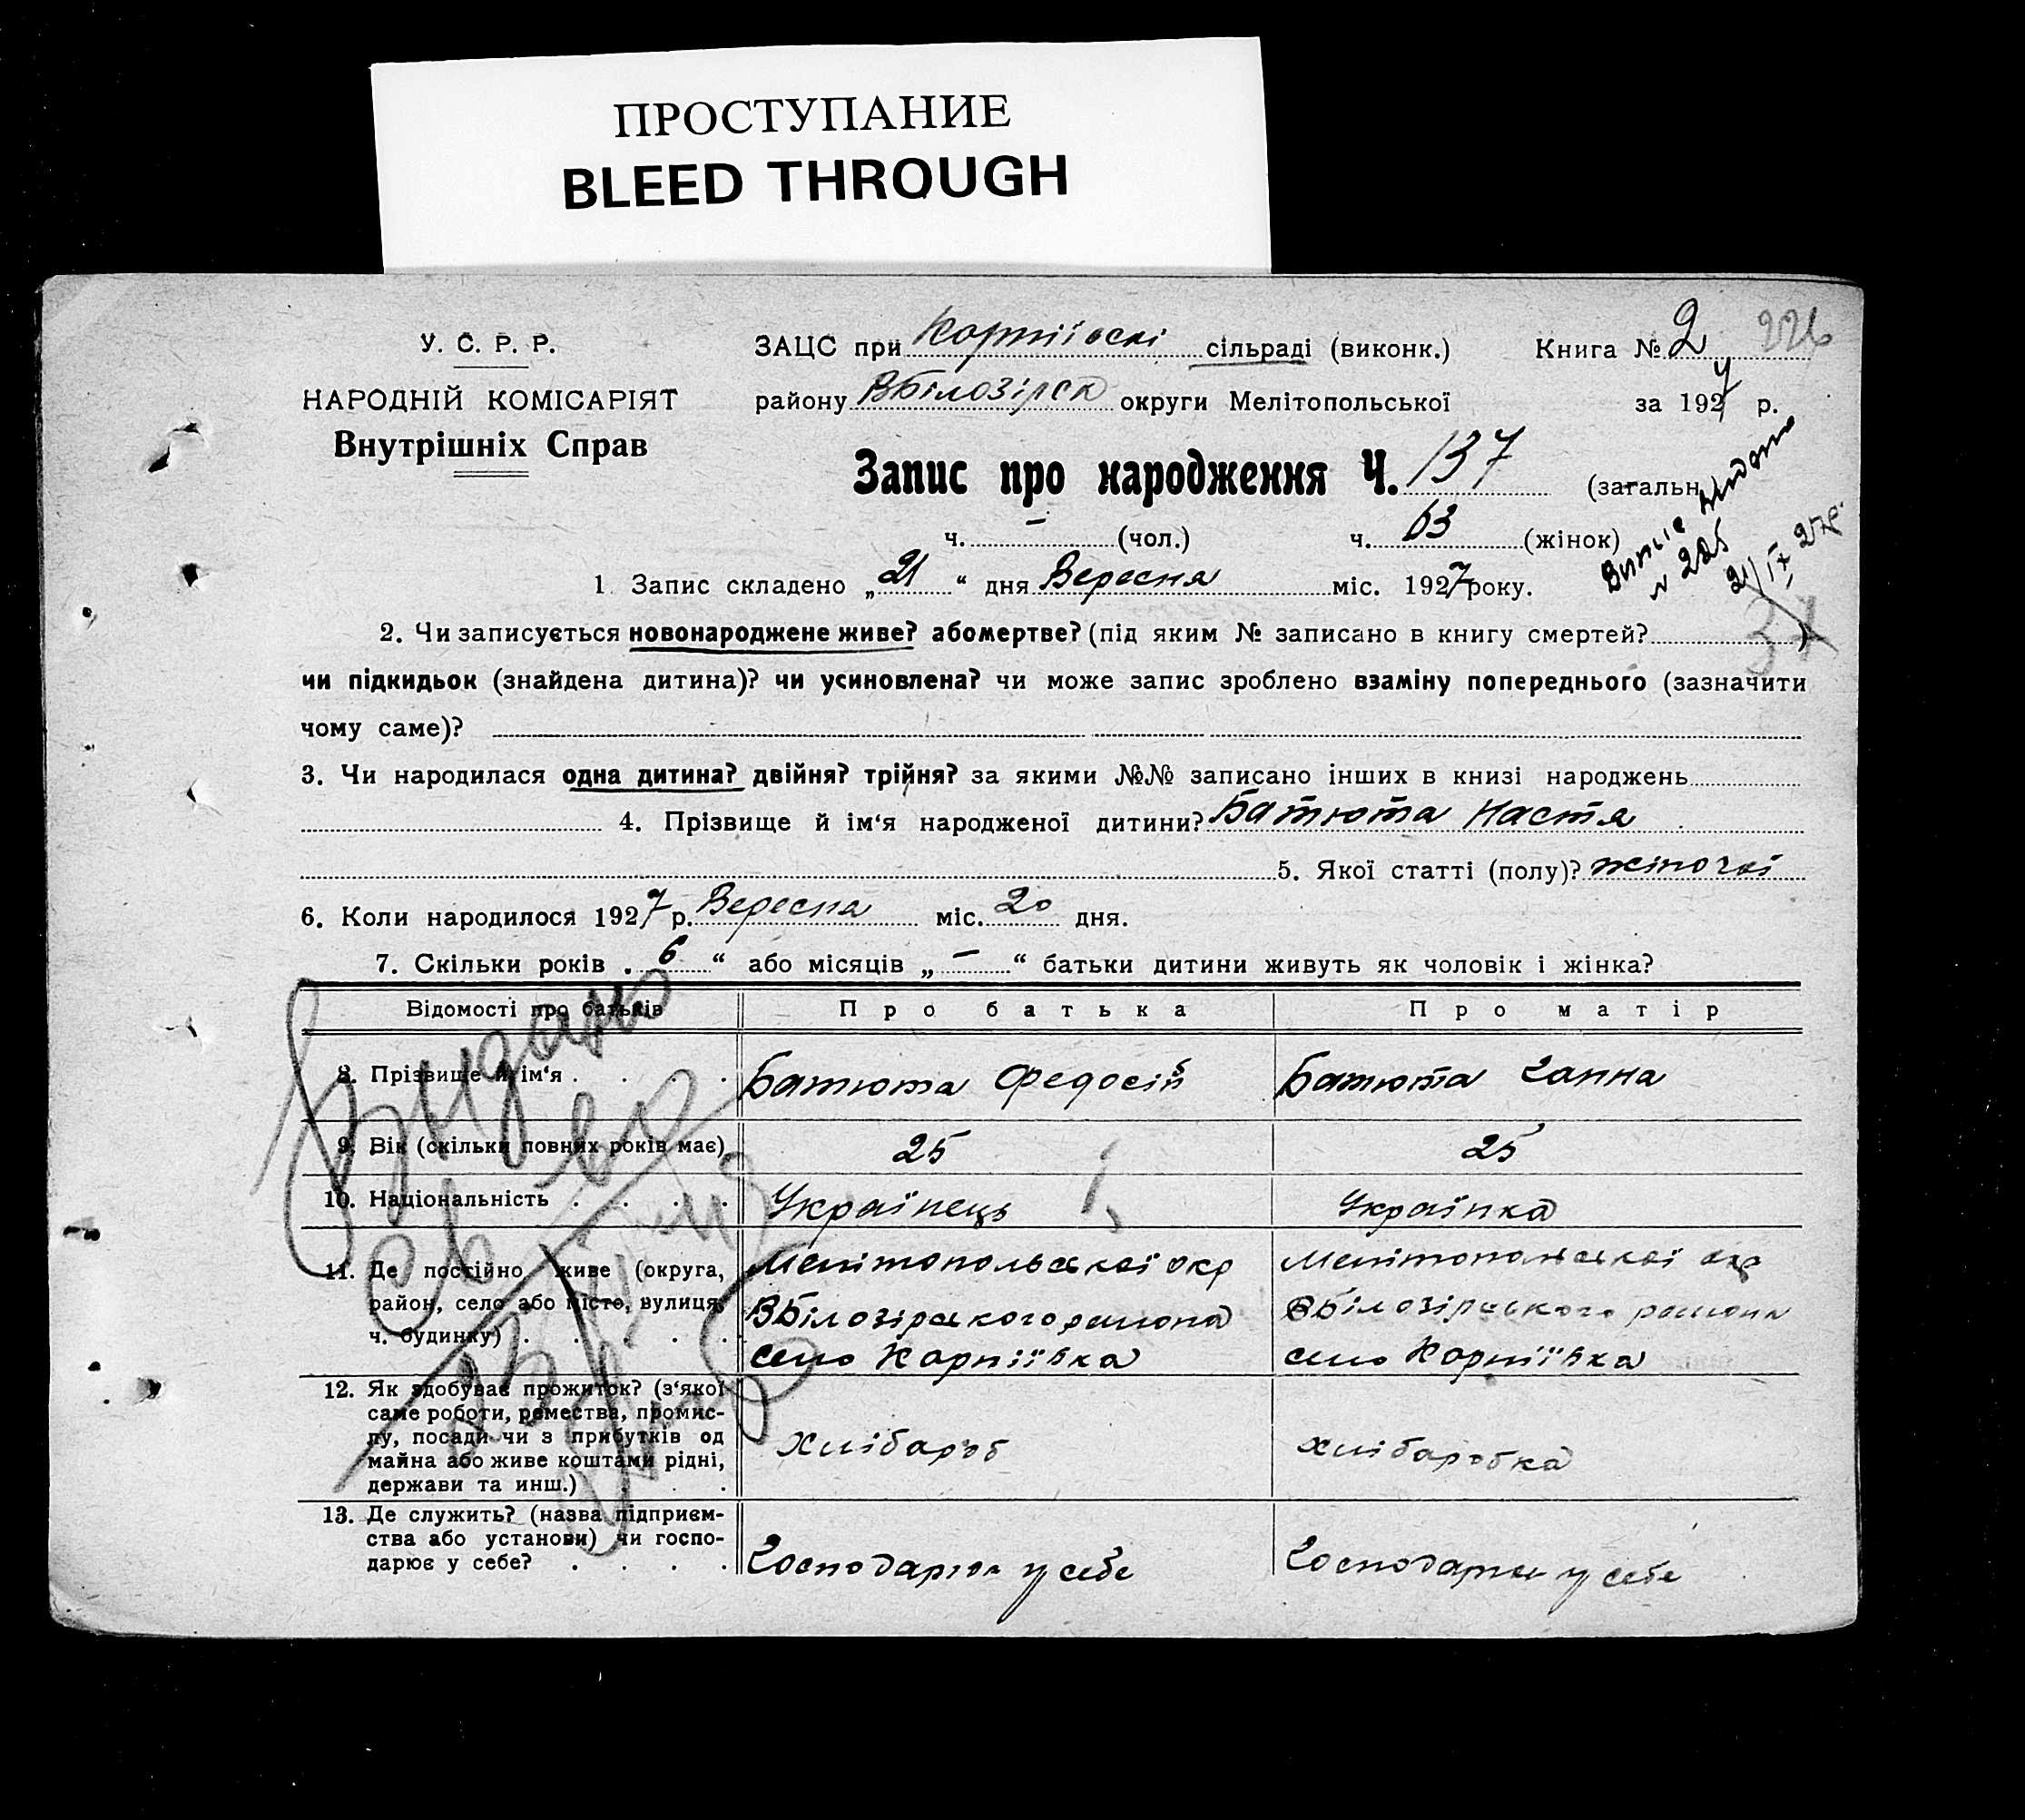 ПРОСТУПАНИЕ
BLEED THROUGH
У. С. Р. Р.
НАРОДНІЙ КОМІСАРІЯТ
Внутрішніх Справ
ЗАЦС при Корніївскі сільраді (виконк.) Книга № 2 226
району ВБілозірск округи Мелітопольської за 1927 р.
Запис про народження Ч. 137 (загальн
ч. – (чол.) ч. 63 (жінок)
Випис видано
№ 225
21/IX 27р.
37
1. Запис складено „21“ дня Вересня міс. 1927 року.
2. Чи записується новонароджене живе? або мертве? (під яким № записано в книгу смертей? )
чи підкидьок (знайдена дитина)? чи усиновлена? чи може запис зроблено взаміну попереднього (зазначити
чому саме)?
3. Чи народилася одна дитина? двійня? трійня? за якими №№ записано інших в книзі народжень
4. Прізвище й ім‘я народженої дитини? Батюта Настя
5. Якої статті (полу)? жіночої
6. Коли народилося 1927 р. Вересня міс. 20 дня.
7. Скільки років „6“ або місяців „–“ батьки дитини живуть як чоловік і жінка?
Відомості про батьків Про батька Про матір
8. Прізвище й ім‘я . . . . Батюта Федосій Батюта Ганна
9. Вік (скільки повних років має) 25 25
10. Національність . . . . Українець Українка
11. Де постійно живе (округа, район, село або місто, вулиця, ч. будинку) . . . . .
Мелітопольської окр
ВБілозірського района
село Корніївка
Мелітопольської окр
ВБілозірського района
село Корніївка
12. Як здобуває прожиток? (з‘якої
саме роботи, ремества, промис-
лу, посади чи з прибутків од
майна або живе коштами рідні,
держави та инш.) . . .
Хлібороб хліборобка
13. Де служить? (назва підприєм-
ства або установи) чи госпо-
дарює у себе? . . . .
Господарює у себе Господарює у себе
Видано